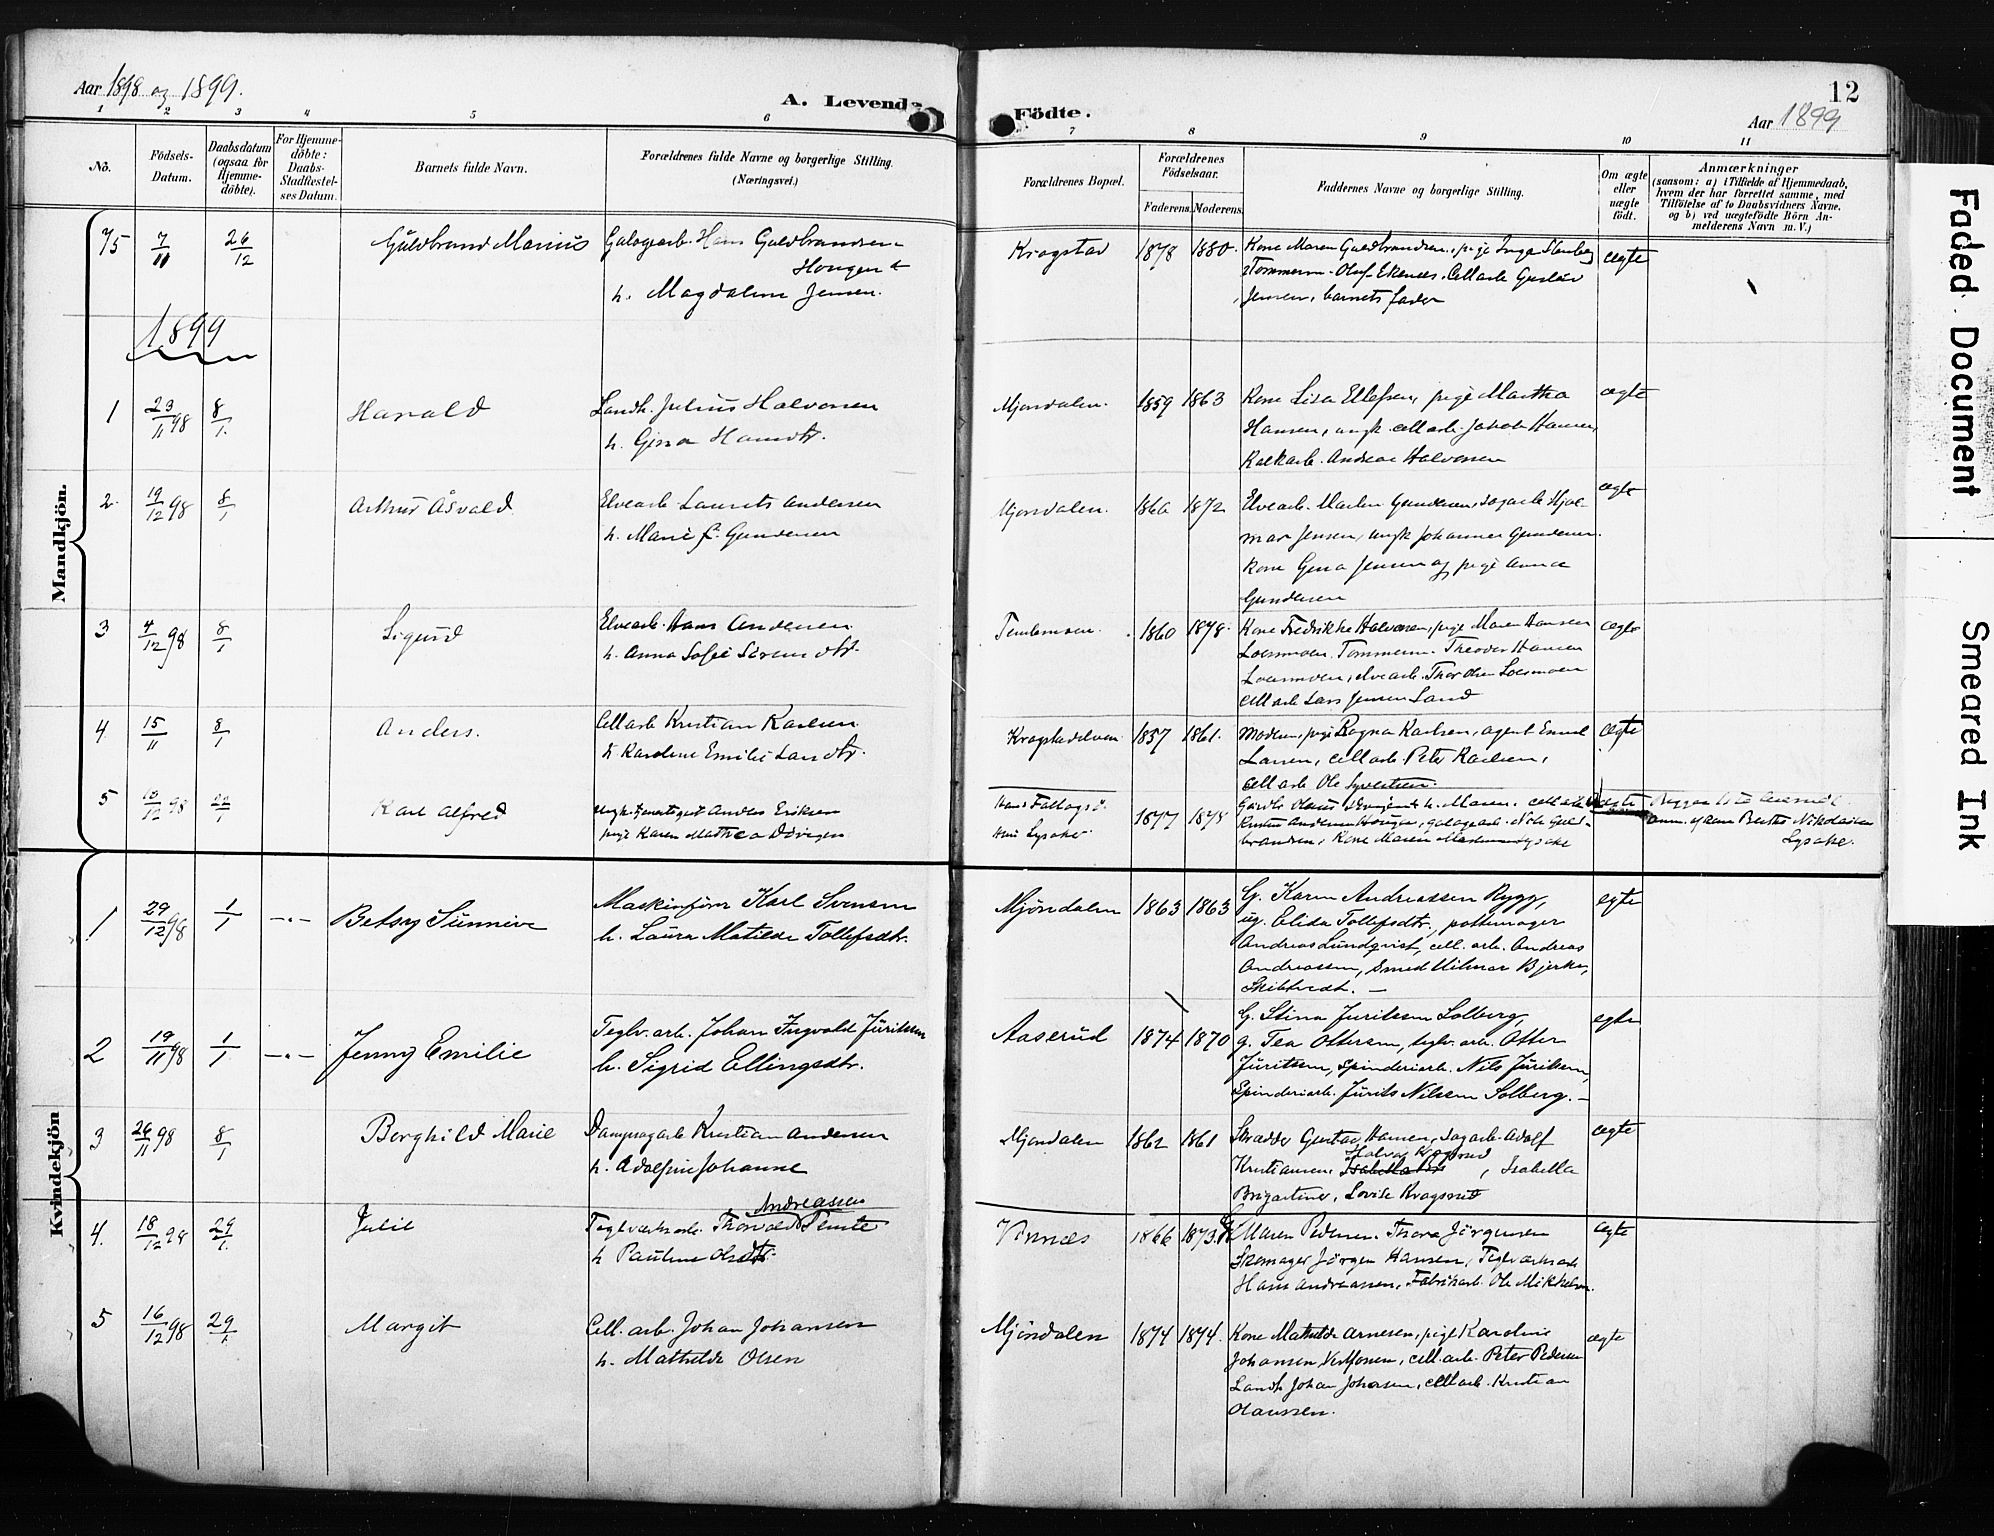 Aar 1898 og 1899.
A. Levende
Födte.
12
Aar 1899
1 2 3 4 5 6 7 8 9 10 11
No.
Födsels-
Datum.
Daabsdatum
(ogsaa for
Hjemme-
döbte).
For Hjemme-
döbte:
Daabs-
Stadfestel-
ses Datum.
Barnets fulde Navn.
Forældrenes fulde Navne og borgerlige Stilling.
(Næringsvei.)
Forældrenes Bopæl.
Forældrenes
Födselsaar.
Faderens. Moderens.
Faddernes Navne og borgerlige Stilling.
Om ægte
eller
uægte
födt.
Anmærkninger
(saasom: a) i Tilfælde af Hjemmedaab,
hvem der har forrettet samme, med
Tilföielse af to Daabsvidners Navne,
og b) ved uægtefödte Börn An-
melderens Navn m. V.)
Mandkjön.
75 7/11 26/12 Guldbrand Marius
Galogearb. Hans Guldbrandsen
Hougen &
h. Magdalene Jensen.
Krogstad 1878 1880.
Kone Maren Guldbrandsen, pige Inga Stenberg
Tømmerm. Oluf Ekenes. Cell arb Gustav
Jensen, barnets fader
ægte
1899
1 23/11 98 8/1. Harald
Landh. Julius Halvorsen
h. Gina Hansdtr.
Mjøndalen. 1859 1863
Kone Lisa Ellefsen, pige Martha
Hansen, ungk. cell arb. Jakob Hansen,
Kalkarb. Andreas Halvorsen
ægte
2. 19/12 98 8/1 Arthur Åsvald
Elvearb. Laurits Andersen
h. Marie f. Gundersen
Mjøndalen. 1860 1872
Elvearb. Martin Gundersen, sagarb. Hjal-
mar Jensen, ungk Johannes Gundersen.
Kone Gina Jensen og pige Anna
Gundersen
ægte
3 4/12 98 8/1 Sigurd
Elvearb. Hans Andersen
h. Anna Sofie Sørensdtr.
1860 1878.
Kone Fredrikke Halvorsen, pige Maren Hansen
Loesmoen. Tømmerm. Theodor Hansen
Loesmoen, elvearb. Thor Olsen Loesmoen
cell arb Lars Jensen Sand
ægte
4 15/11 8/1 Anders.
Cell arb Kristian Karlsen
h. Karoline Emilie Larsdtr.
Krogstadelven 1857 1861.
Moderen, pige Ragna Karlsen, agent Emil
Larsen, cell arb. Peter Karlsen,
cell arb Ole Syvertsen.
ægte
5 98 22/1 Karl Alfred
Anders Eriksen
pige Karen Mathea
Hans
Hun Lysaker. 1877 1878
Kone Maren
Berthe Nikolaisen
Lysaker.
Kvindekjön
1 29/12 98 1/1 —"— Betsy Sunnive
Maskinfører Karl Svensen
h. Laura Matilde Tollefsdtr.
Mjöndalen 1863 1863
G. Karen Andreassen Rygg,
ug. Elida Tollefsdtr., pottemager
Andreas Lundqvist, cell. arb. Andreas
Andreassen, Smed Hilmar Bjerke,
Skibtvedt. —
egte
2 19/11 98 1/1 —"— Jenny Emilie
Teglv. arb. Johan Ingvald Juritsen
h. Sigrid Ellingsdtr.
Aaserud 1874 1870
G. Stina Juritsen Solberg,
g. Tea Ottersen, teglv. arb. Otter
Juritsen, Spinderiarb. Nils Juritsen,
Spinderiarb. Jurits Nilsen Solberg. —
egte
3 26/11 98 8/1 Borghild Marie
Dampsagarb Kristian Andersen
h. Adolfine Johanne
Mjøndalen 1862 1861
Skrædder Gustav Hansen, sagarb. Adolf
Kristiansen, Halvor, Isabella
Lovise Kragsrud
ægte
4. 18/12 98 29/1. Julie
Andreassen
Teglværksarb. Thorvald Temte
h. Pauline Olsdtr.
Vinnæs 1866 1873.
Maren Pedersen. Thora Jørgensen
Skomager Jørgen Hansen, Teglværksarb
Hans Andreassen, Fabrikarb. Ole Mikkelsen.
ægte
5 16/12 98 29/1. Margit
Cell. arb. Johan Johansen
h. Mathilde Olsen
Mjöndalen 1874 1874.
Kone Mathilde Arnesen, pige Karoline
Johansen Vestfossen, cell. arb. Peter Pedersen
Landh. Johan Johansen, cell arb. Kristian
Olaussen.
ægte
Faded Document
Smeared Ink